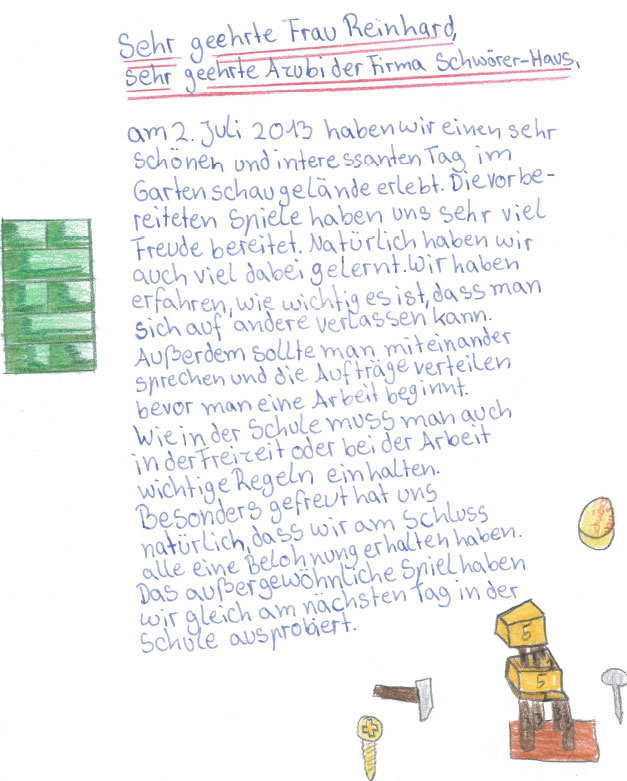 Sehr geehrte Frau Reinhard,
sehr geehrte Azubi der Firma Schwörer-Haus,
am 2. Juli 2013 haben wir einen sehr
schönen und interessanten Tag im
Gartenschaugelände erlebt. Die vorbe-
reiteten Spiele haben uns sehr viel
Freude bereitet. Natürlich haben wir
auch viel dabei gelernt. Wir haben
erfahren, wie wichtig es ist, dass man
sich auf andere verlassen kann.
Außerdem sollte man miteinander
sprechen und die Aufträge verteilen
bevor man eine Arbeit beginnt.
Wie in der Schule muss man auch
in der Freizeit oder bei der Arbeit
wichtige Regeln einhalten.
Besonders gefreut hat uns
natürlich, dass wir am Schluss
alle eine Belohnung erhalten haben.
Das außergewöhnliche Spiel haben
wir gleich am nächsten Tag in der
Schule ausprobiert.
5
5